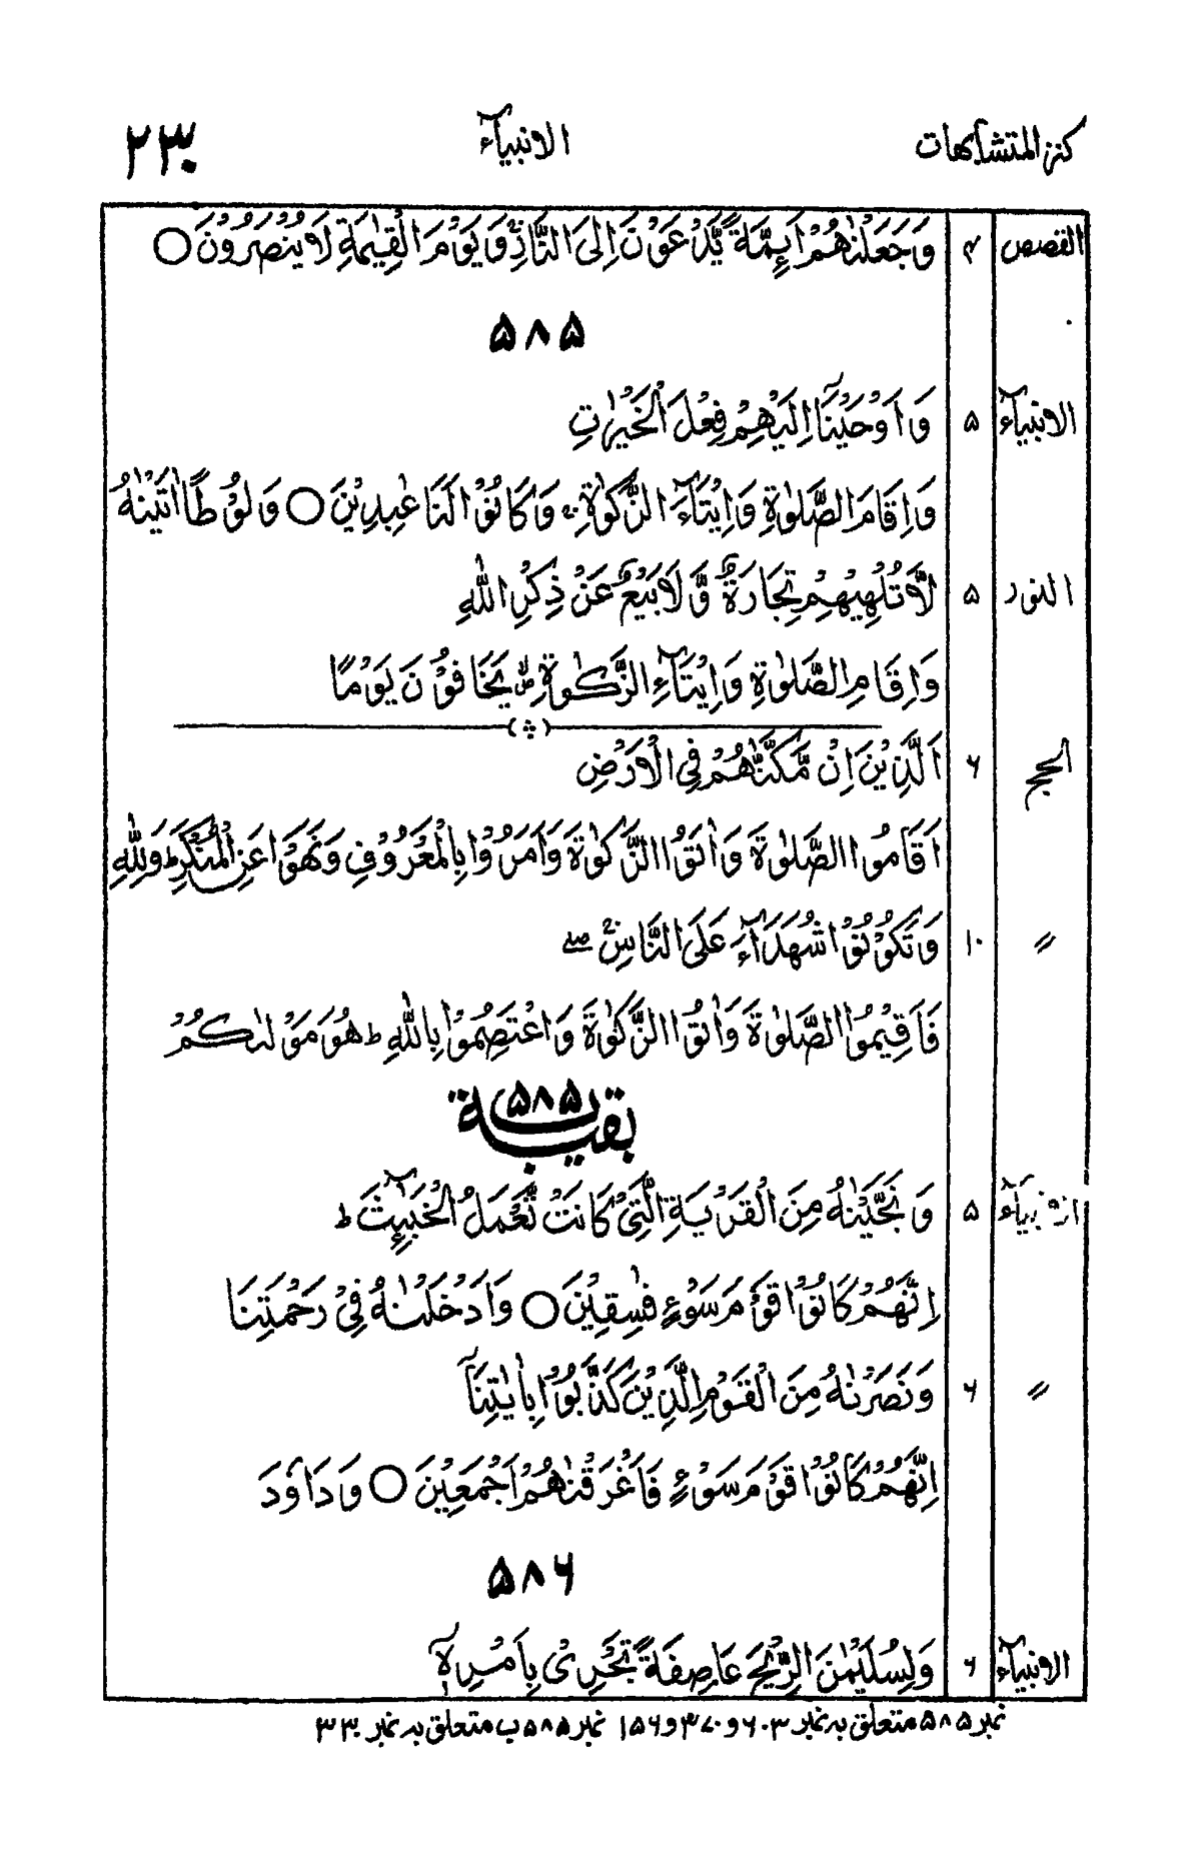 كنز المتشابهات الانبیآء ۲۳۰
القصص ۴ وَجَعَلْنٰهُمْ اَىِٕمَّةً يَّدْعُوْنَ اِلَى النَّارِ ۚ وَيَوْمَ الْقِيٰمَةِ لَا يُنْصَرُوْنَ ○
۵۸۵
الانبیآء ۵ وَاَوْحَيْنَآ اِلَيْهِمْ فِعْلَ الْخَيْرٰتِ
وَاِقَامَ الصَّلٰوةِ وَاِيْتَآءَ الزَّكٰوةِ ۚ وَكَانُوْا لَنَا عٰبِدِيْنَ ○ وَلُوْطًا اٰتَيْنٰهُ
النور ۵ لَّا تُلْهِيْهِمْ تِجَارَةٌ وَّلَا بَيْعٌ عَنْ ذِكْرِ اللّٰهِ
وَاِقَامِ الصَّلٰوةِ وَاِيْتَآءِ الزَّكٰوةِ ۙ يَخَافُوْنَ يَوْمًا
الحج ۶ اَلَّذِيْنَ اِنْ مَّكَّنّٰهُمْ فِى الْاَرْضِ
اَقَامُوا الصَّلٰوةَ وَاٰتَوُا الزَّكٰوةَ وَاَمَرُوْا بِالْمَعْرُوْفِ وَنَهَوْا عَنِ الْمُنْكَرِ ؕ وَلِلّٰهِ
〃 ۱۰ وَتَكُوْنُوْا شُهَدَآءَ عَلَى النَّاسِ ۖۚ
فَاَقِيْمُوا الصَّلٰوةَ وَاٰتُوا الزَّكٰوةَ وَاعْتَصِمُوْا بِاللّٰهِ ؕ هُوَ مَوْلٰىكُمْ
بقیة ۵۸۵ ب
الانبیآء ۵ وَنَجَّيْنٰهُ مِنَ الْقَرْيَةِ الَّتِىْ كَانَتْ تَّعْمَلُ الْخَبٰٓىِٕثَ ؕ
اِنَّهُمْ كَانُوْا قَوْمَ سَوْءٍ فٰسِقِيْنَ ○ وَاَدْخَلْنٰهُ فِىْ رَحْمَتِنَا
〃 ۶ وَنَصَرْنٰهُ مِنَ الْقَوْمِ الَّذِيْنَ كَذَّبُوْا بِاٰيٰتِنَا
اِنَّهُمْ كَانُوْا قَوْمَ سَوْءٍ فَاَغْرَقْنٰهُمْ اَجْمَعِيْنَ ○ وَدَاوٗدَ
۵۸۶
الانبیآء ۶ وَلِسُلَيْمٰنَ الرِّيْحَ عَاصِفَةً تَجْرِىْ بِاَمْرِهٖٓ
نمبر ۵۸۵ متعلق بہ نمبر ۶۰۳ و ۳۷۰ و ۱۵۶ نمبر ۵۸۵ ب متعلق بہ نمبر ۳۳۰